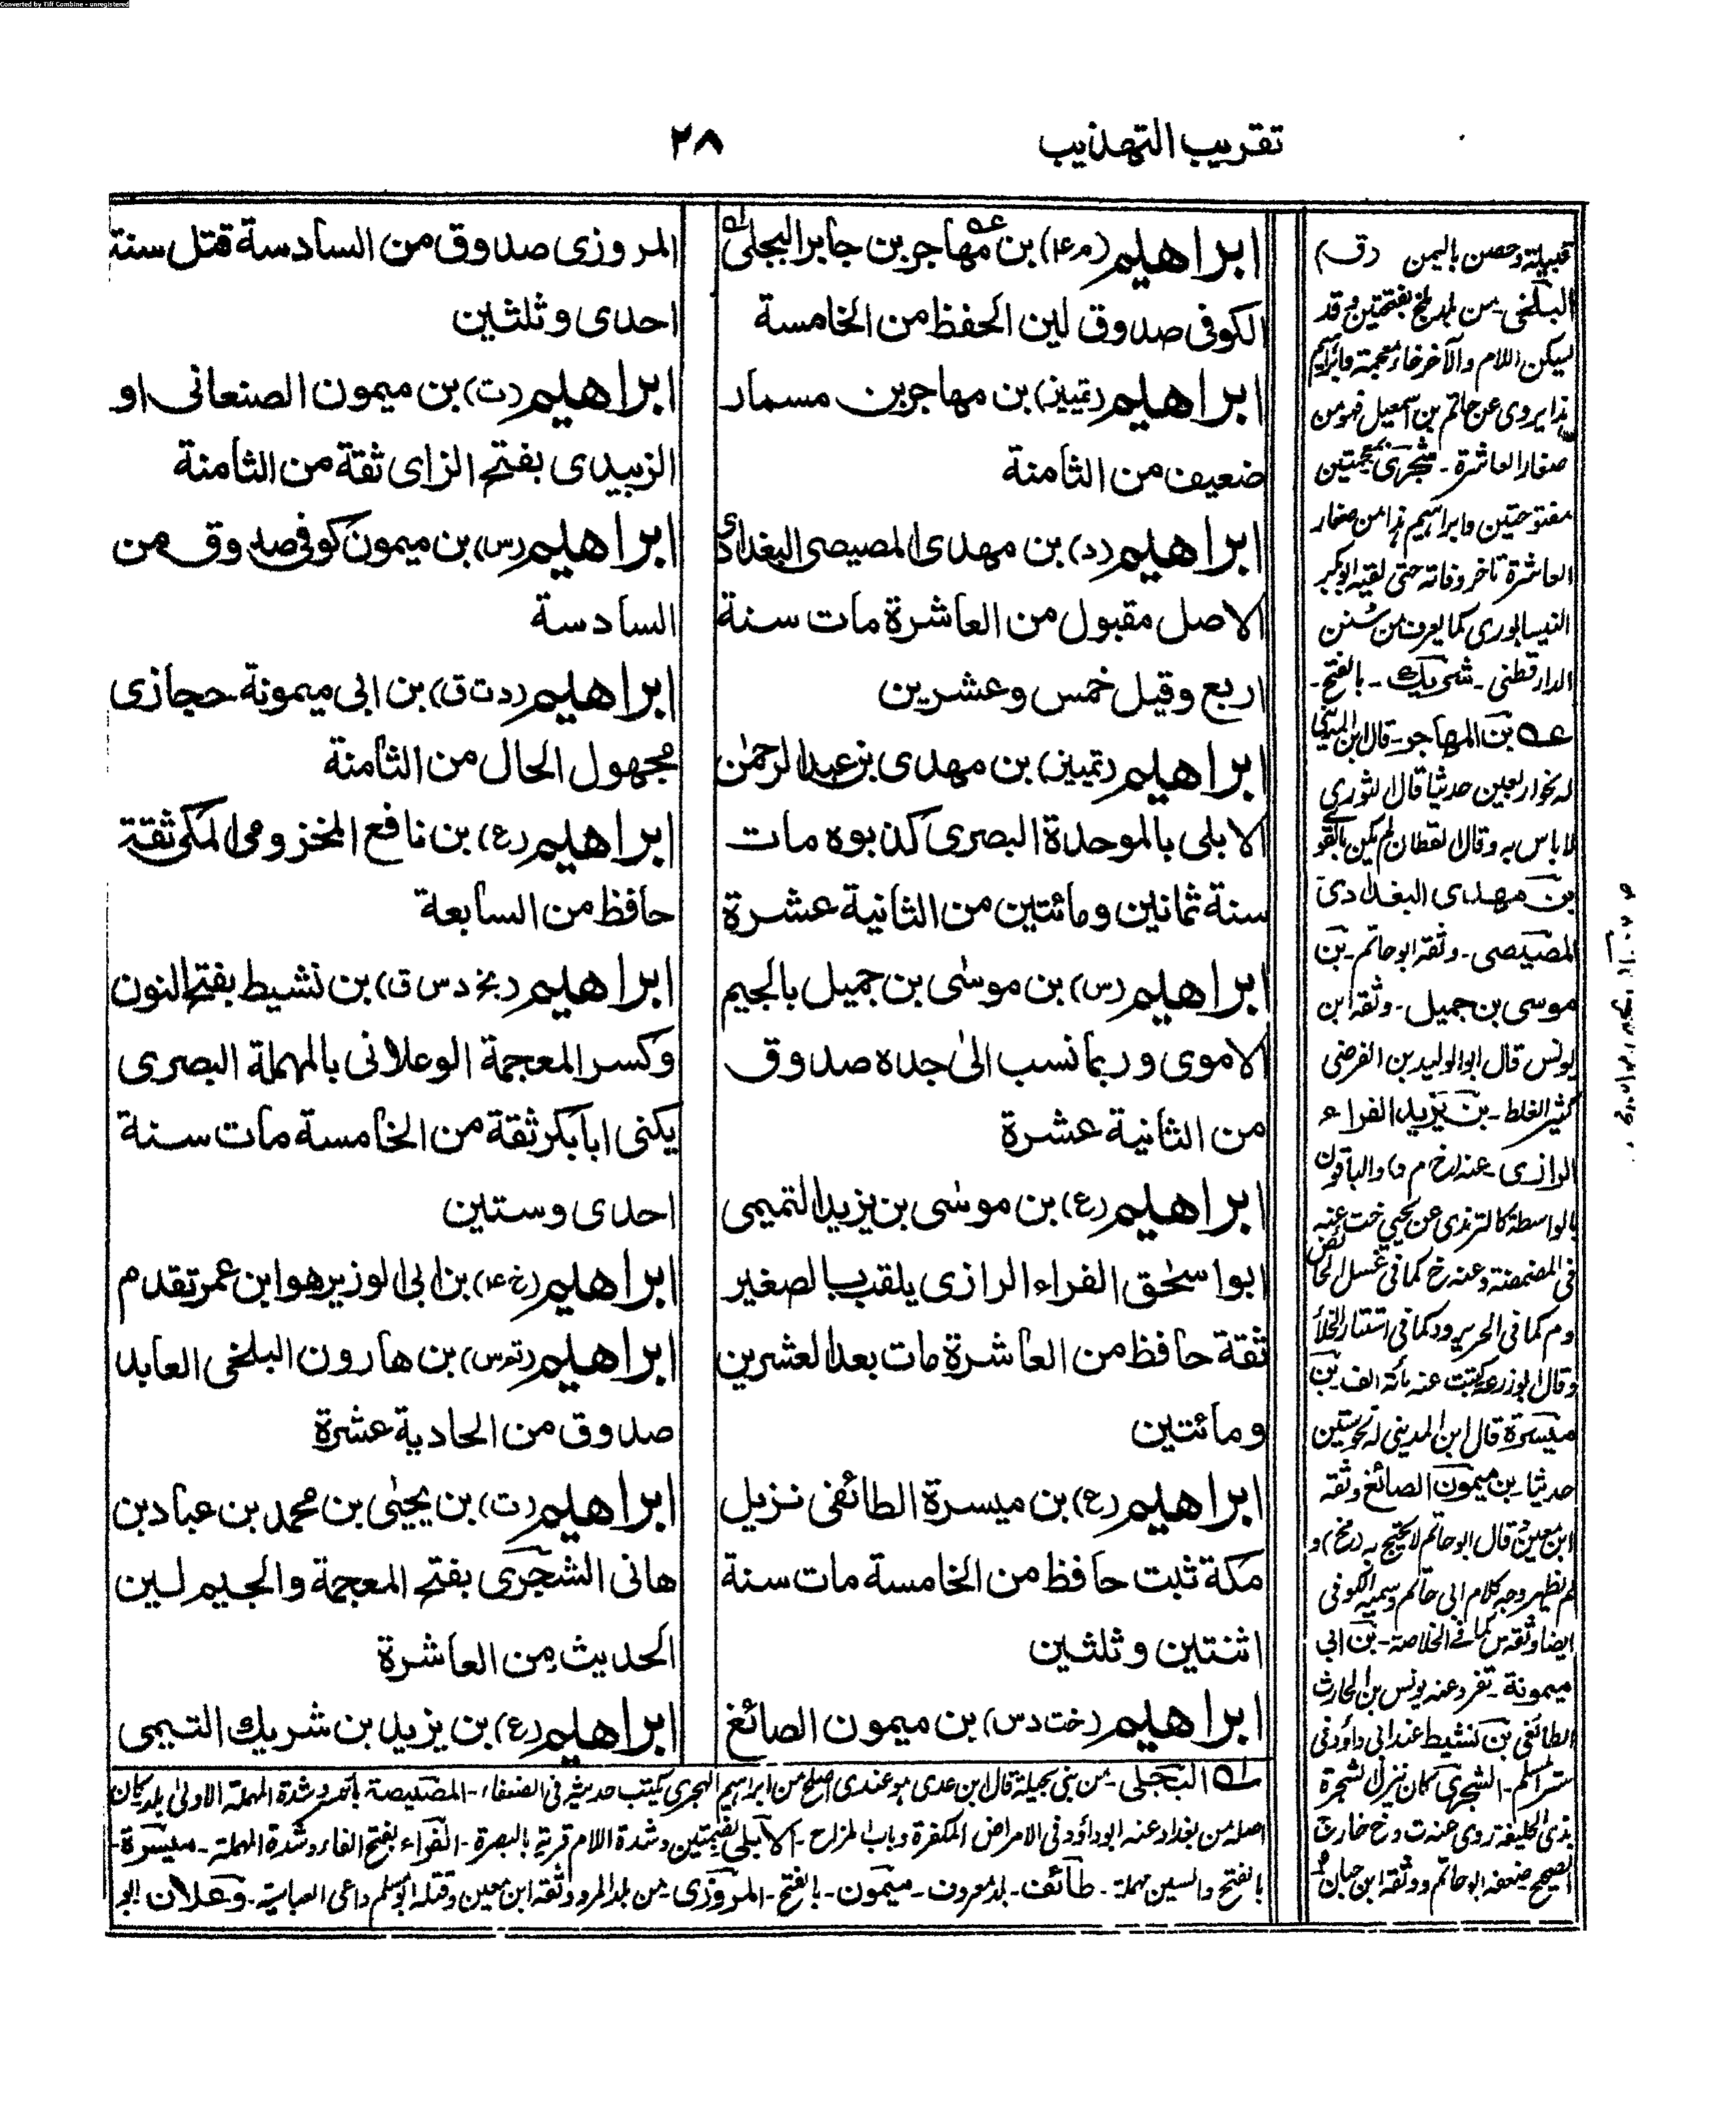 Converted by Tiff Combine - unregistered
تقريب التهذيب
٢٨
ابراهيم (م٤) بن مهاجر بن جابر البجلى
الكوفى صدوق لين الحفظ من الخامسة
ابراهيم (تمييز) بن مهاجر بن مسمار
ضعيف من الثامنة
ابراهيم (د) بن مهدى المصيصى البغدادى
الاصل مقبول من العاشرة مات سنة
اربع وقيل خمس وعشرين
ابراهيم (تمييز) بن مهدى بن عبد الرحمٰن
الابلى بالموحدة البصرى كذبوه مات
سنة ثمانين ومائتين من الثانية عشرة
ابراهيم (س) بن موسٰى بن جميل بالجيم
الاموى وربما نسب الىٰ جده صدوق
من الثانية عشرة
ابراهيم (ع) بن موسٰى بن يزيد التميمى
ابو اسحٰق الفراء الرازى يلقب الصغير
ثقة حافظ من العاشرة مات بعد العشرين
ومائتين
ابراهيم (ع) بن ميسرة الطائفى نزيل
مكة ثبت حافظ من الخامسة مات سنة
اثنتين وثلثين
ابراهيم (خت د س) بن ميمون الصائغ
المروزى صدوق من السادسة قتل سنة
احدى وثلثين
ابراهيم (ت) بن ميمون الصنعانى او
الزبيدى بفتح الزاى ثقة من الثامنة
ابراهيم (س) بن ميمون كوفى صدوق من
السادسة
ابراهيم (د ت ق) بن ابى ميمونة حجازى
مجهول الحال من الثامنة
ابراهيم (ع) بن نافع المخزومى المكى ثقة
حافظ من السابعة
ابراهيم (بخ د س ق) بن نشيط بفتح النون
وكسر المعجمة الوعلانى بالمهملة البصرى
يكنى ابا بكر ثقة من الخامسة مات سنة
احدى وستين
ابراهيم (خ ٤) بن ابى الوزير هو ابن عمر تقدم
ابراهيم (س) بن هارون البلخى العابد
صدوق من الحادية عشرة
ابراهيم (ت) بن يحيىٰ بن محمد بن عباد بن
هانى الشجرى بفتح المعجمة والجيم لين
الحديث من العاشرة
ابراهيم (ع) بن يزيد بن شريك التيمى
قبيلة وحصن باليمن (ق)
البلخى - من بلد بلخ بفتحتين وقد
يسكن اللام والآخر خاء معجمة وابراهيم
هذا يروى عن حاتم بن اسمعيل فهو من
صغار العاشرة - شجرى بمعجمتين
مفتوحتين وابراهيم هذا من صغار
العاشرة تاخر وفاته حتى لقيه ابو بكر
النيسابورى كما يعرف من سنن
الدارقطنى - شريك - بالفتح -
عه بن المهاجر - قال ابن المدينى
له نحو اربعين حديثا قال الثورى
لا باس به وقال القطان لم يكن بالقوى
بن مهدى البغدادى
المصيصى - وثقه ابو حاتم - بن
موسى بن جميل - وثقه ابن
يونس قال ابو الوليد بن الفرضى
كثير الغلط - بن يزيد الفراء
الرازى - عنه (خ م د) والباقون
بالواسطة كالترمذى عن يحيى خت عنه
فى المضمضة وعنه خ كما فى غسل الحائض
وم كما فى الحرير ود كما فى استتار الخلاء
وقال ابو زرعة كتبت عنه مائة الف - بن
ميسرة قال ابن المدينى له نحو ستين
حديثا - بن ميمون الصائغ وثقه
ابن معين قال ابو حاتم لا يحتج به (مخ) و
لم يظهر وجه كلام ابى حاتم وسميه الكوفى
ايضا وثقه س كما فى الخلاصة - بن ابى
ميمونة - تفرد عنه يونس بن الحارث
الطائفى بن نشيط عند ابى داؤد فى
ستر المسلم - الشجرى كان ينزل الشجرة
بذى الحليفة روى عنه ت وخ خارج
الصحيح ضعفه ابو حاتم ووثقه ابن حبان
له البجلى - من بنى بجيلة قال ابن عدى هو عندى اصلح من ابراهيم الهجرى يكتب حديثه فى الضعفاء - المصيصة بالكسر وشدة المهملة الاولىٰ بلد كان
اصله من بغداد عنه ابو داؤد فى الامراض المكفرة وباب المزاح - الابلى بضمتين وشدة اللام قرية بالبصرة - الفراء بفتح الفاء وشدة المهملة - ميسرة -
بالفتح والسين مهملة - طائف - بلد معروف - ميمون - بالفتح - المروزى - من بلد المرو وثقه ابن معين وقتله ابو مسلم داعى العباسية - وعلان ابو